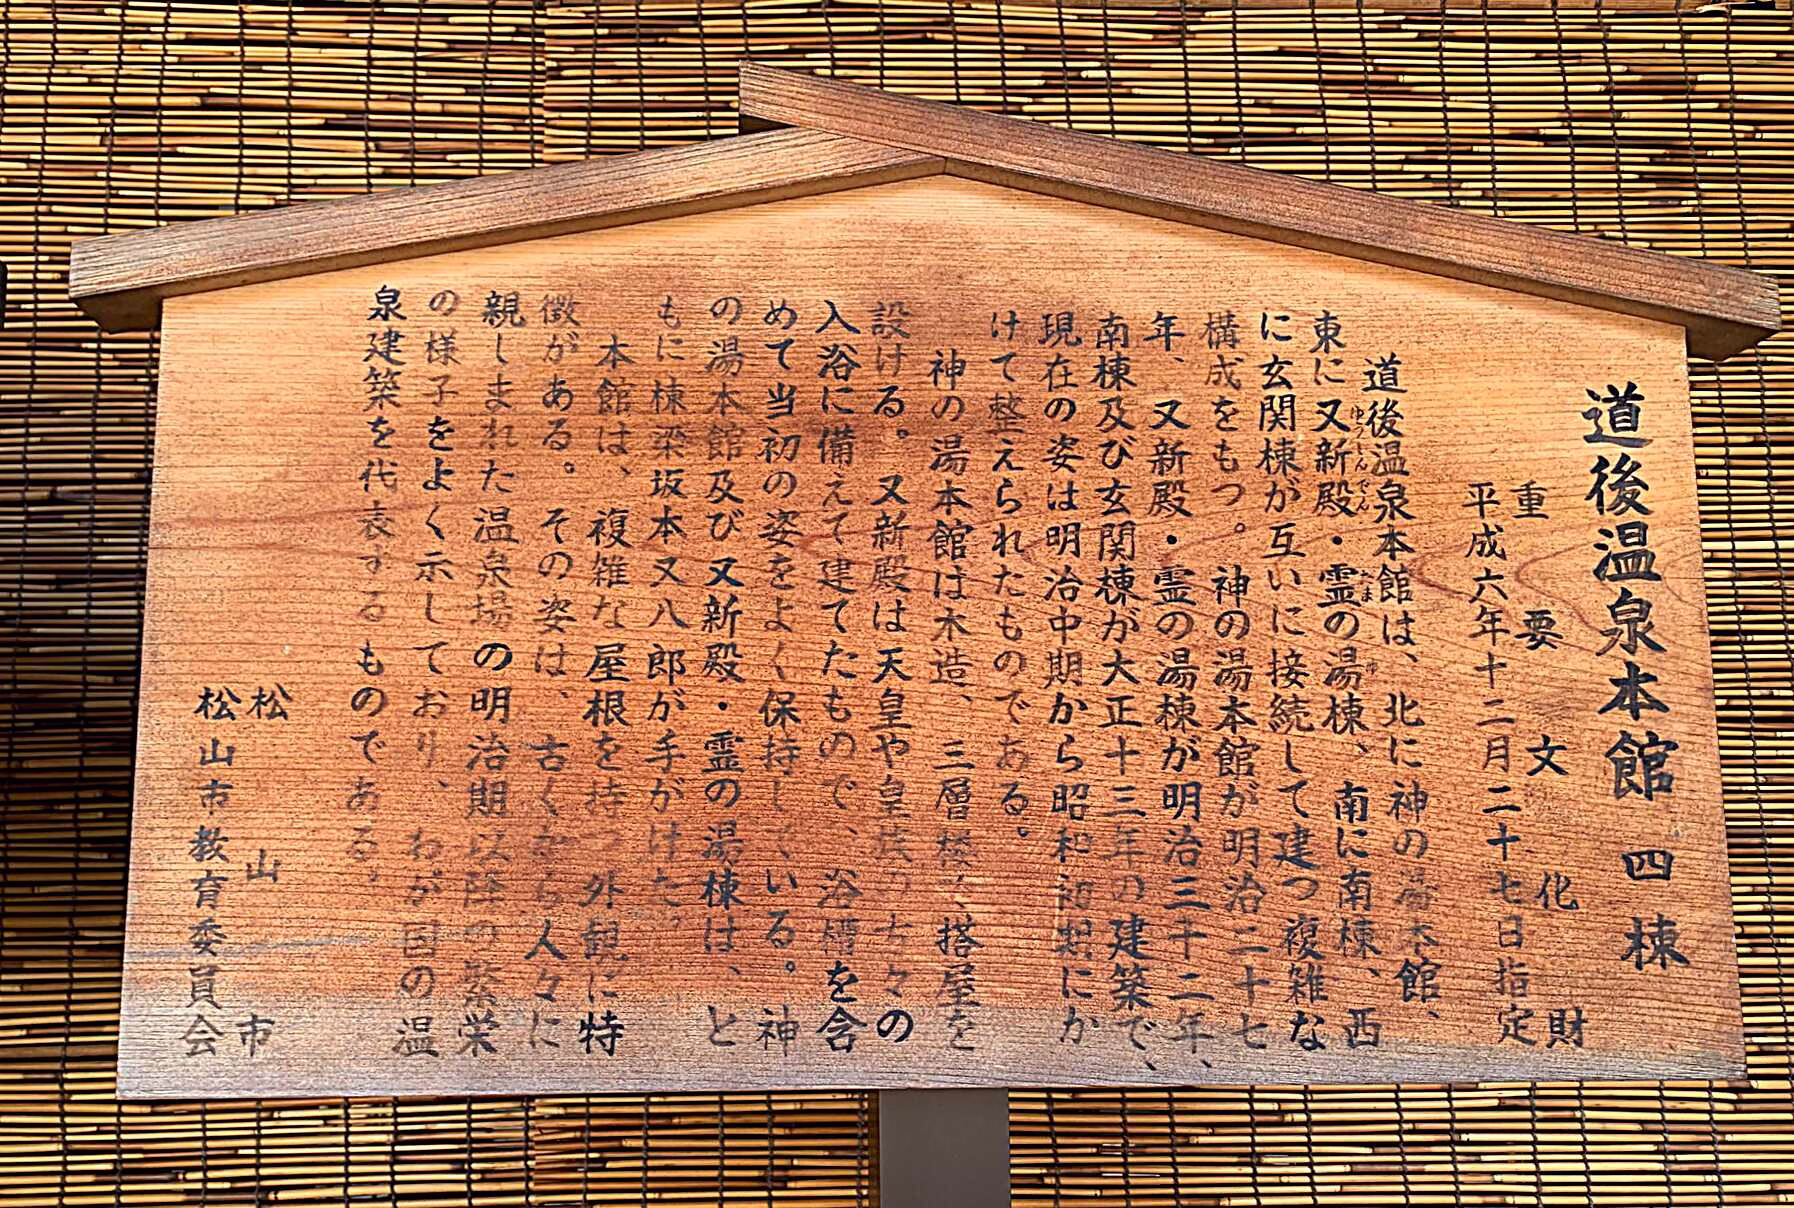 道後温泉本館 四棟
重要文化財
平成六年十二月二十七日指定
道後温泉本館は、北に神の湯本館、
東に又新殿・霊の湯棟、南に南棟、西
ゆうしんでん
たま
ゆ
に玄関棟が互いに接続して建つ複雑な
構成をもつ。神の湯本館が明治二十七
年、又新殿・霊の湯棟が明治三十二年、
南棟及び玄関棟が大正十三年の建築で、
現在の姿は明治中期から昭和初期にか
けて整えられたものである。
神の湯本館は木造、三層楼で、搭屋を
設ける。又新殿は天皇や皇族の方々の
入浴に備えて建てたもので、浴槽を含
めて当初の姿をよく保持している。神
の湯本館及び又新殿・霊の湯棟は、と
もに棟梁坂本又八郎が手がけた。
本館は、複雑な屋根を持つ外観に特
徴がある。その姿は、古くから人々に
親しまれた温泉場の明治期以降の繁栄
の様子をよく示しており、わが国の温
泉建築を代表するものである。
松山市
松山市教育委員会